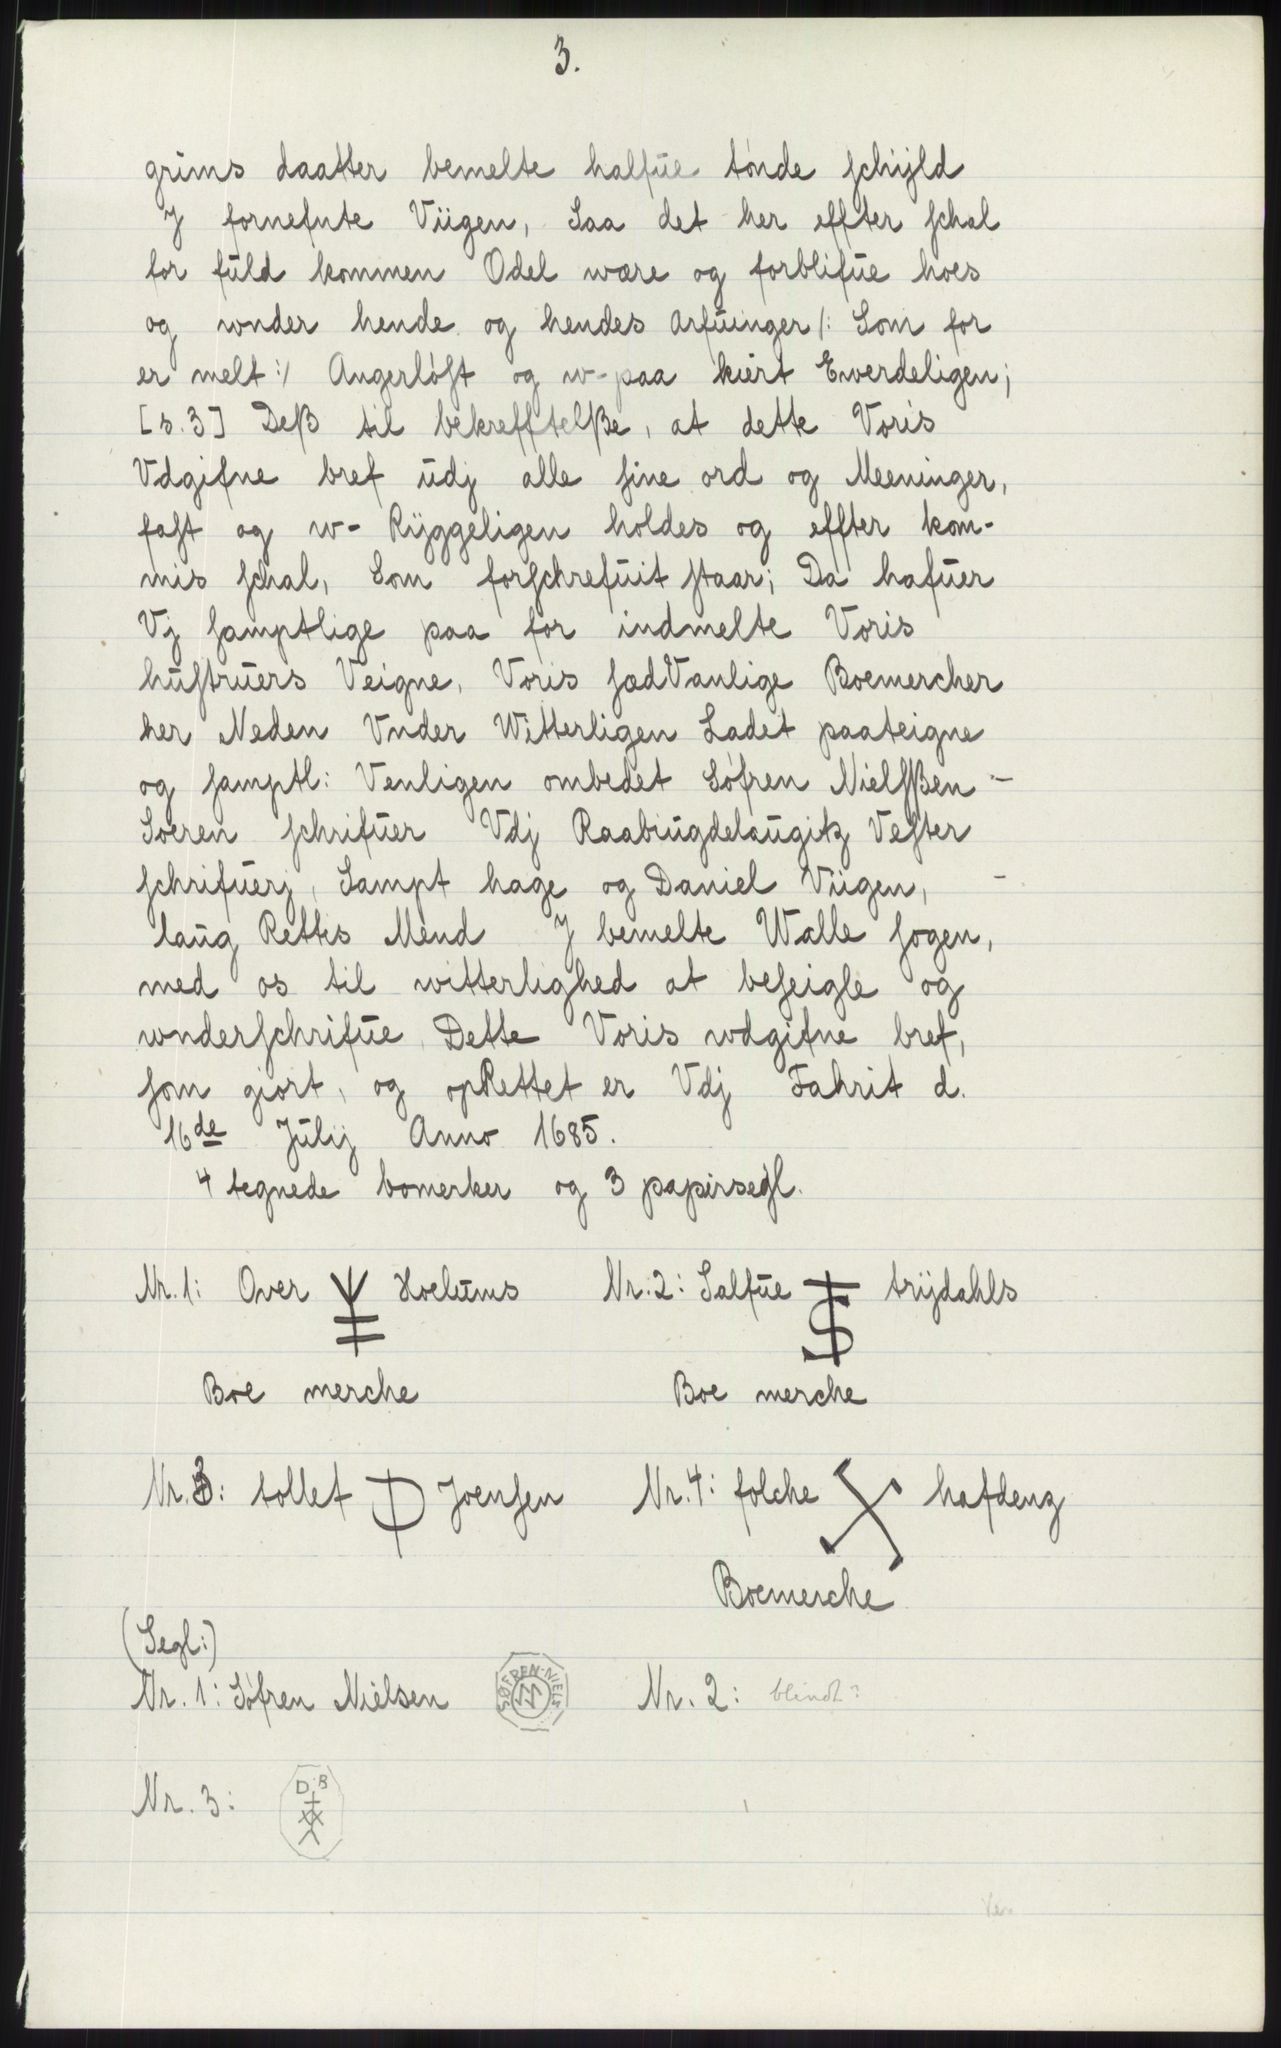 3.
grims daatter bemelte halfue tønde schyld
J fornefnte Viigen, Saa det her effter schal
for fuld kommen Odel wære og forblifue hoes
og wnder hende og hendes arfuinger /: Som for
er melt :/ Angerløst og w-paa kiert Ewerdeligen;
[s.3] Deß til bekrefftelße, at dette Voris
Vdgifne bref udj alle sine ord og Meeninger,
fast og w- Ryggeligen holdes og effter kom-
mis schal, Som forschrefuit staar; Da hafuer
Vj samptlige paa for indmelte Voris
hustruers Veigne, Voris sædVanlige Boemercher
her Neden Vnder Witterligen Ladet paateigne
og samptl: Venligen ombedet Søfren Nielsßen -
Soeren schrifuer Vdj Raabiugdelaugitz Vester
schrifuerj, Sampt hage og Daniel Viigen, -
laug Rettis Mend J bemelte Walle sogen,
med os til witterlighed at beseigle og
wnderschrifue Dette Voris wdgifne bref,
som giort, og opRettet er Vdj Fahrit d.
16de Julij Anno 1685.
4 tegnede bomerker og 3 papirsegl.
Nr. 1: Over Hoelums Nr. 2: Salfue trydahls
Boe merche Boe merche
Nr. 3: tollef Joensen Nr. 4: folche hafdenz
Boemerche
(Segl:)
Nr. 1: Søfren Nielsen SØFREN NIELS Nr. 2: blindt?
Nr. 3: D B